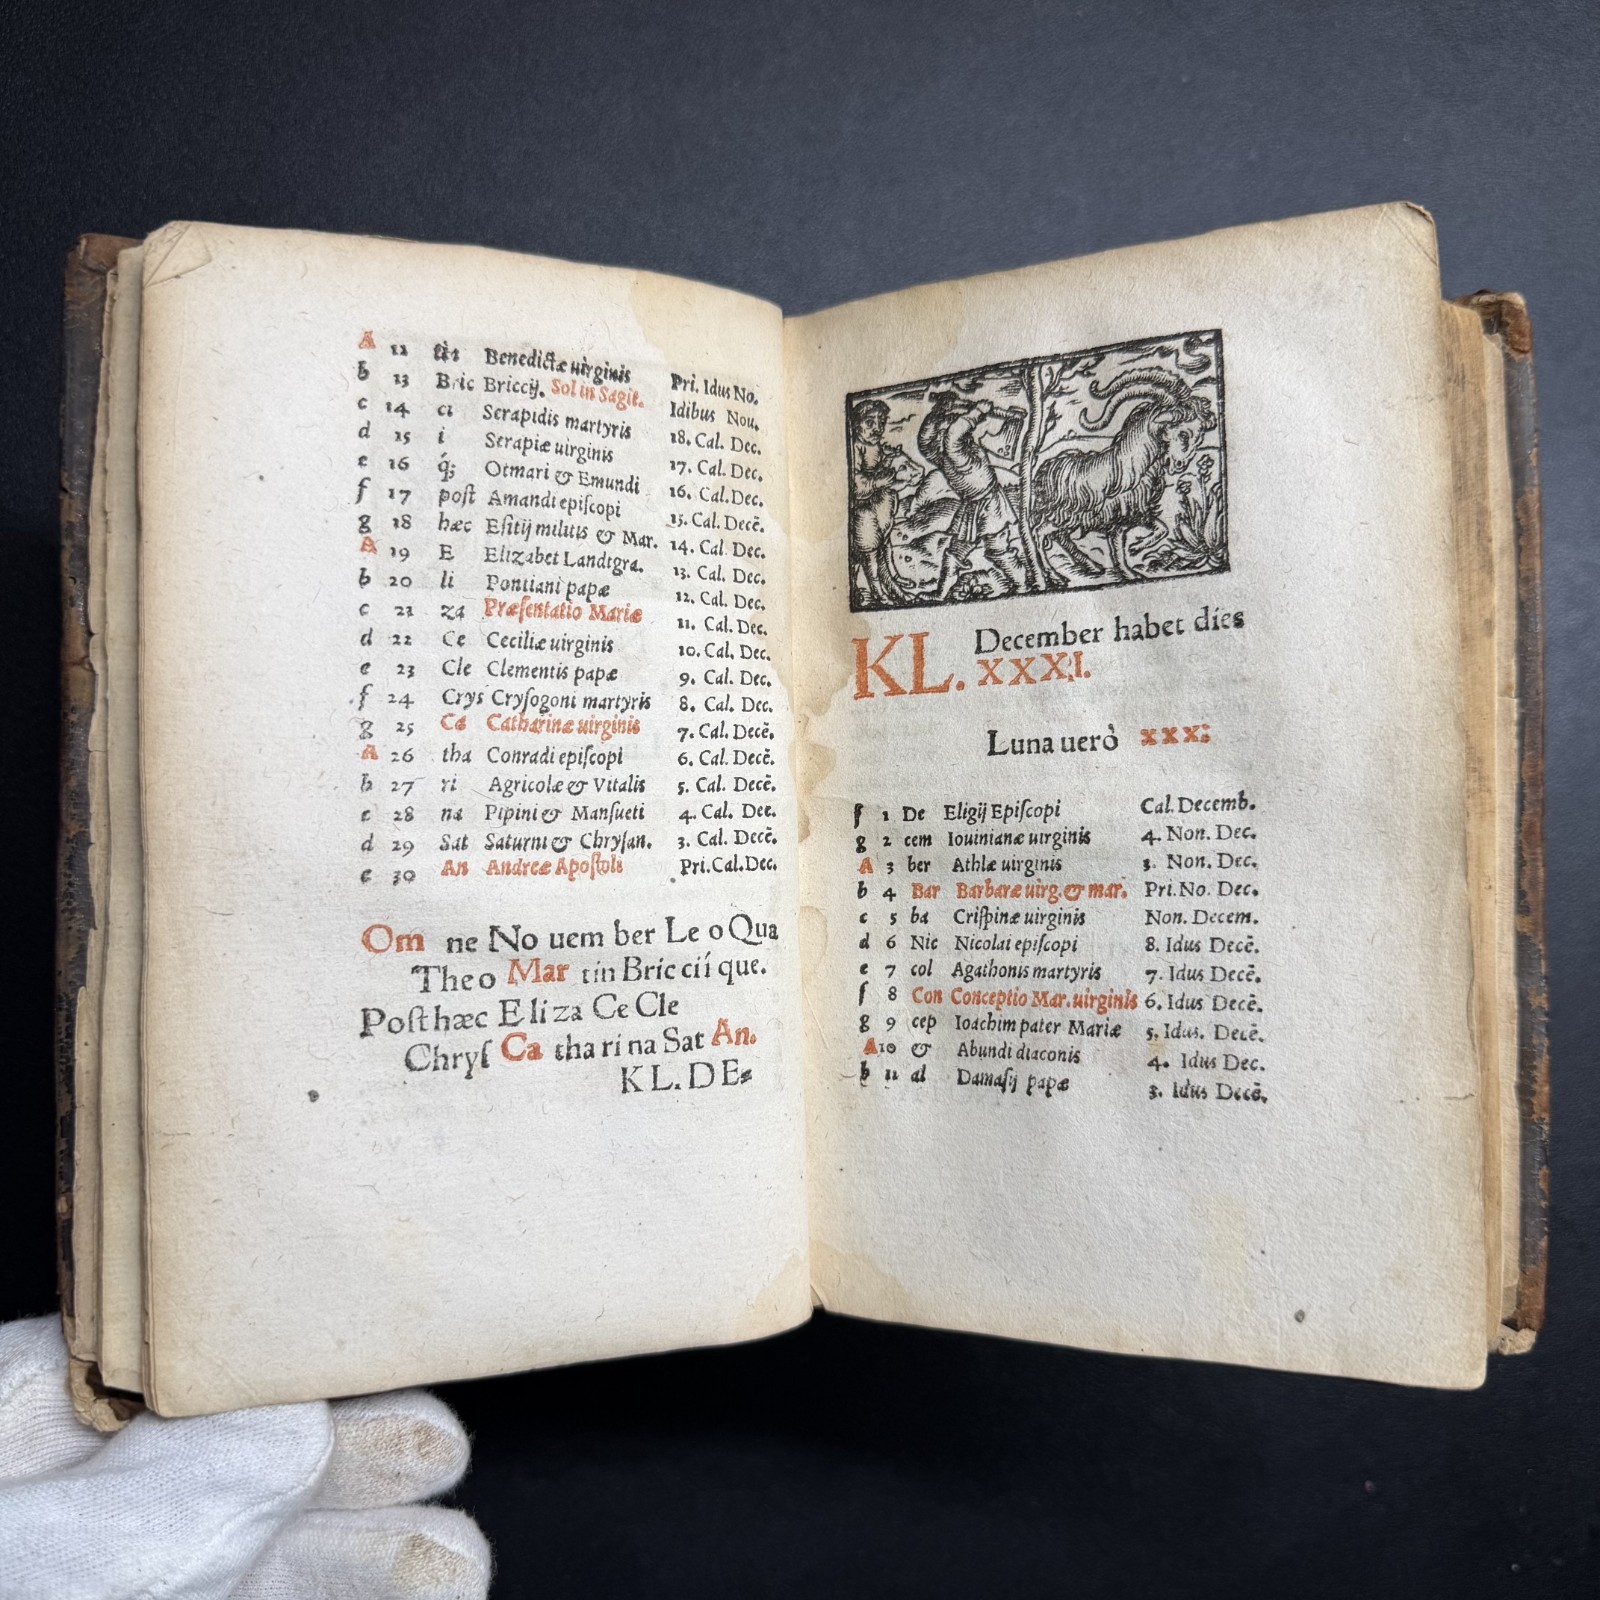 A 12 tis Benedictæ uirginis Pri. Idus No.
b 13 Bric Briccij. Sol in Sagit. Idibus Nou.
c 14 ci Serapidis martyris 18. Cal. Dec.
d 15 i Serapiæ uirginis 17. Cal. Dec.
e 16 q́; Otmari & Emundi 16. Cal. Dec.
f 17 poſt Amandi epiſcopi 15. Cal. Decē.
g 18 hæc Eſitij militis & Mar. 14. Cal. Dec.
A 19 E Elizabet Landtgra. 13. Cal. Dec.
b 20 li Pontiani papæ 12. Cal. Dec.
c 21 za Præſentatio Mariæ 11. Cal. Dec.
d 22 Ce Ceciliæ uirginis 10. Cal. Dec.
e 23 Cle Clementis papæ 9. Cal. Dec.
f 24 Crys Cryſogoni martyris 8. Cal. Dec.
g 25 Ca Catharinæ uirginis 7. Cal. Decē.
A 26 tha Conradi epiſcopi 6. Cal. Decē.
b 27 ri Agricolæ & Vitalis 5. Cal. Decē.
c 28 na Pipini & Manſueti 4. Cal. Dec.
d 29 Sat Saturni & Chryſan. 3. Cal. Decē.
e 30 An Andreæ Apoſtoli Pri. Cal. Dec.
Om ne No uem ber Le o Qua
Theo Mar tin Bric cií que.
Poſt hæc E li za Ce Cle
Chryſ Ca tha ri na Sat An.
KL. DE=
KL. December habet dies
XXXI.
Luna uerò xxx:
f 1 De Eligij Epiſcopi Cal. Decemb.
g 2 cem Iouinianæ uirginis 4. Non. Dec.
A 3 ber Athlæ uirginis 3. Non. Dec.
b 4 Bar Barbaræ uirg. & mar. Pri. No. Dec.
c 5 ba Criſpinæ uirginis Non. Decem.
d 6 Nic Nicolai epiſcopi 8. Idus Decē.
e 7 col Agathonis martyris 7. Idus Decē.
f 8 Con Conceptio Mar. uirginis 6. Idus Decē.
g 9 cep Ioachim pater Mariæ 5. Idus. Decē.
A 10 & Abundi diaconis 4. Idus Dec.
b 11 al Damaſij papæ 3. Idus Decē.